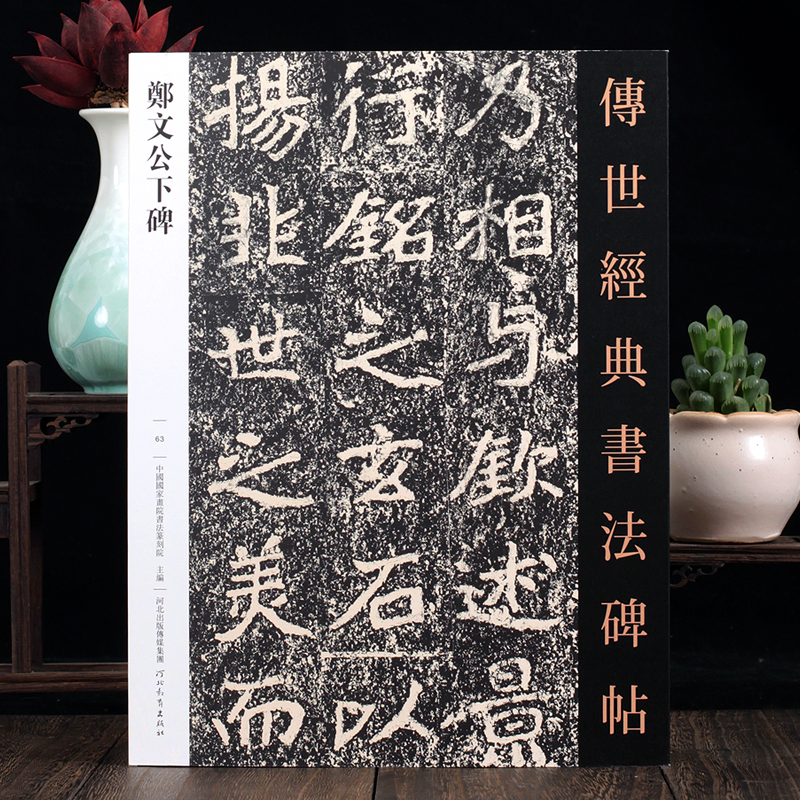 傳世經典書法碑帖
乃相与歡述景
行銘之玄石以
揚非世之美而
鄭文公下碑
63
中國國家畫院書法篆刻院 主編
河北出版傳媒集團
河北教育出版社